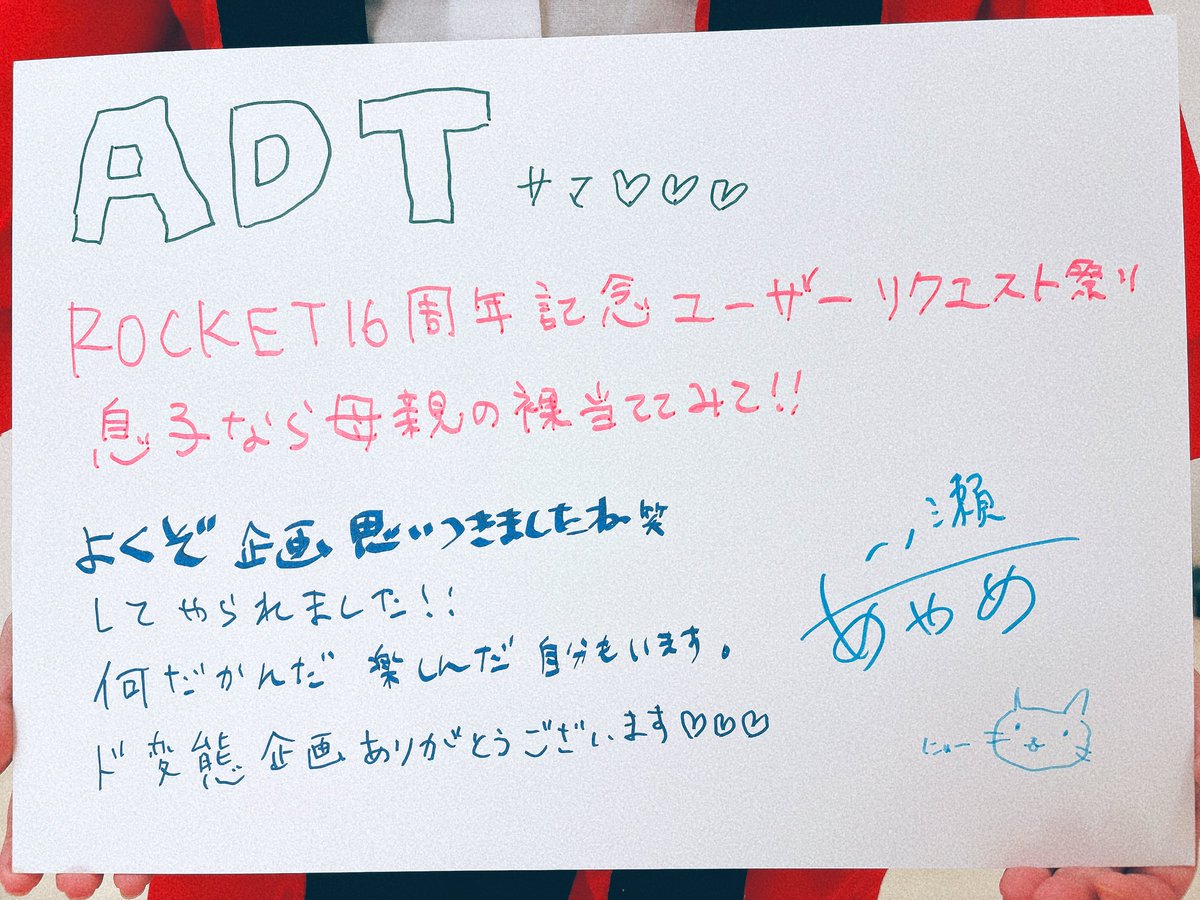 ADTサマ♡♡♡
ROCKET16周年記念ユーザーリクエスト祭り
息子なら母親の裸当ててみて!!
よくぞ企画思いつきましたね笑
してやられました!!
何だかんだ楽しんだ自分もいます。
ド変態企画ありがとうございます♡♡♡
一ノ瀬
あやめ
にゃー